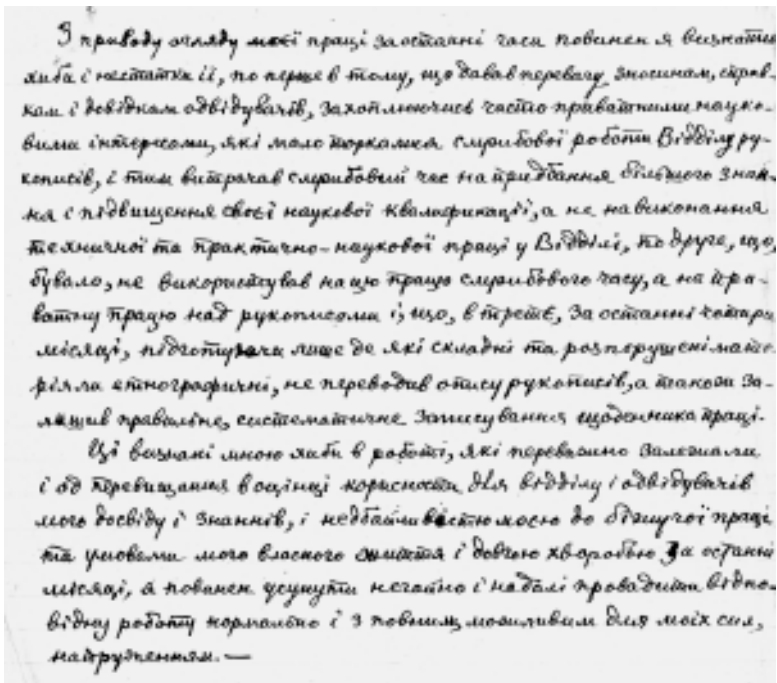 З приводу огляду моєї праці за останні часи повинен я визнати
хиби і нестатки її, по перше в тому, що давав перевагу зносинам, справ-
кам і довідкам одвідувачів, захоплюючись часто приватними науко-
вими інтересами, які мало торкалися службової роботи Відділу ру-
кописів, і тим витрачав службовий час на придбання більшого знан-
ня і підвищення своєї наукової кваліфікації, а не на виконання
технічної та практично-наукової праці у Відділі, по друге, що,
бувало, не використував на цю працю службового часу, а на при-
ватну працю над рукописами і, що, в третє, за останні чотири
місяці, підготуючи лише де які складні та розпорушені мате-
ріяли етнографичні, не переводив опису рукописів, а також за-
лишив правильне, систематичне записування щоденника праці.
Ці визнані мною хиби в роботі, які переважно залежали
і од перевищання в оцінці корисности для відділу і одвідувачів
мого досвіду і знаннів, і недбайливостю мосю до біжучої праці
та умовами мого власного життя і довгою хворобою за останні
місяці, я повинен усунути негайно і надалі провадити відпо-
відну роботу нормально і з повним, можливим для моїх сил,
напруженням. —